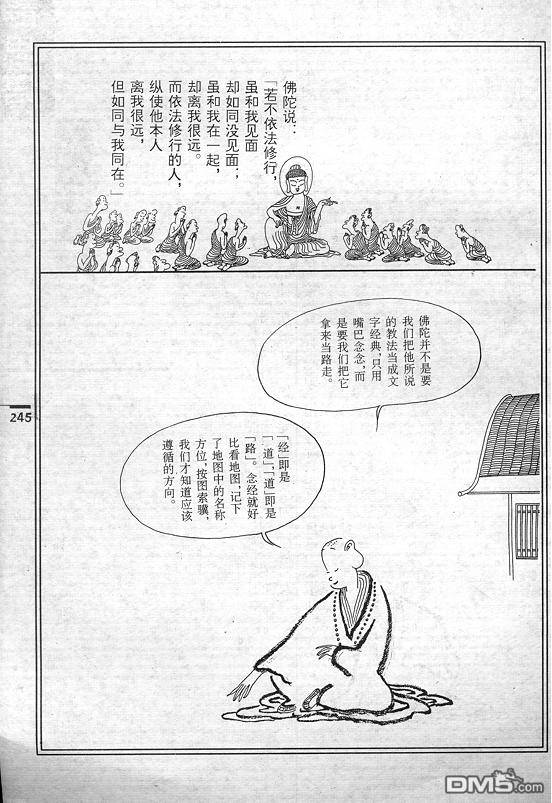 佛陀说：
「若不依法修行，
虽和我见面
却如同没见面；
虽和我在一起，
却离我很远。
而依法修行的人，
纵使他本人
离我很远，
但如同与我同在。」
佛陀并不是要
我们把他所说
的教法当成文
字经典，只用
嘴巴念念，而
是要我们把它
拿来当路走。
「经」即是
「道」，「道」即是
「路」。念经就好
比看地图，记下
了地图中的名称
方位，按图索骥，
我们才知道应该
遵循的方向。
245
DM5.com